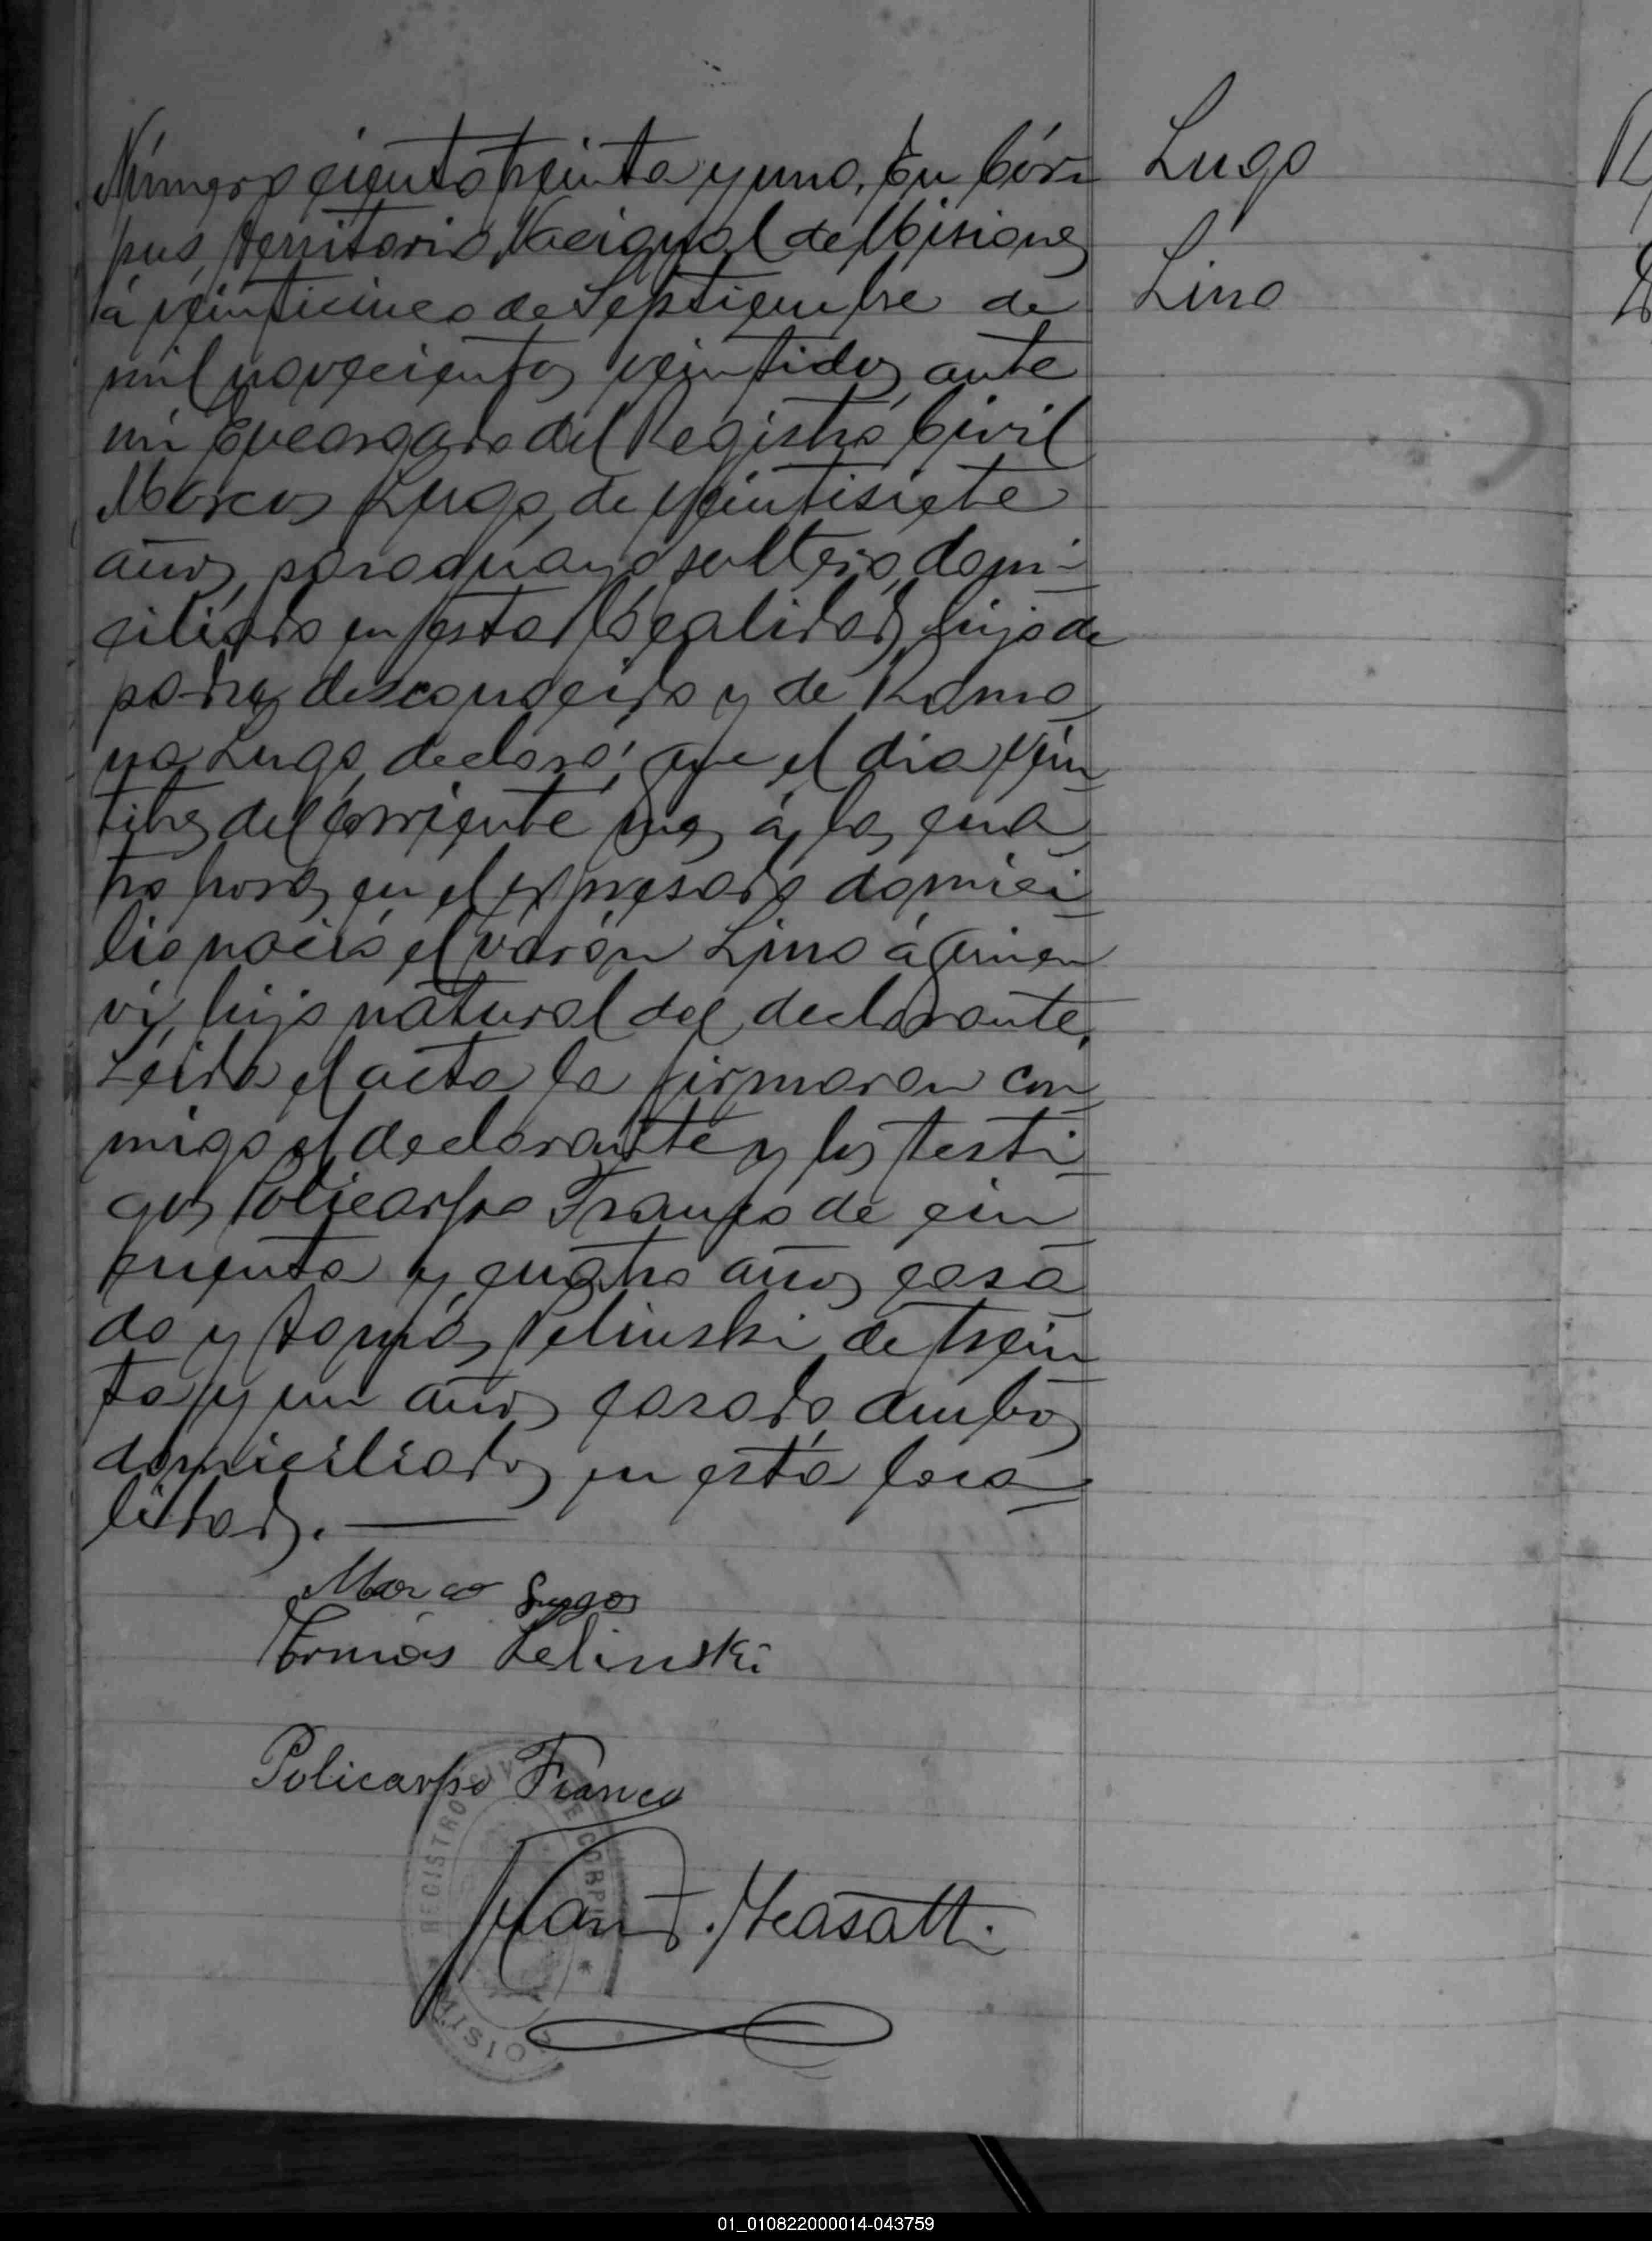 Número ciento treinta y uno. En Cór-
pus, territorio Nacional de Misiones
á veinticinco de Septiembre de
mil novecientos veintidos, ante
mi Encargado del Registro Civil
Marcos Lugo, de veintisiete
años, paraguayo soltero, domi-
ciliado en esta localidad, hijo de
padre desconocido y de Ramo
na Lugo, declaró: que el dia vein
titres del corriente mes á las cua
tro horas en el expresado domici
lio nació el varón Lino á quien
vi, hijo natural del declarante.
Leida el acta la firmaron con
migo el declarante y los testi
gos Policarpo Franco de cin
cuenta y cuatro años casa
do y Tomás Zelinski de trein
ta y un años casado, ambos
domiciliados en esta loca
lidad.
Lugo
Lino
Marco Lugo
Tomás Zelinski
Policarpo Franco
REGISTRO CIVIL DE CORPUS
MISIONES
01_010822000014-043759